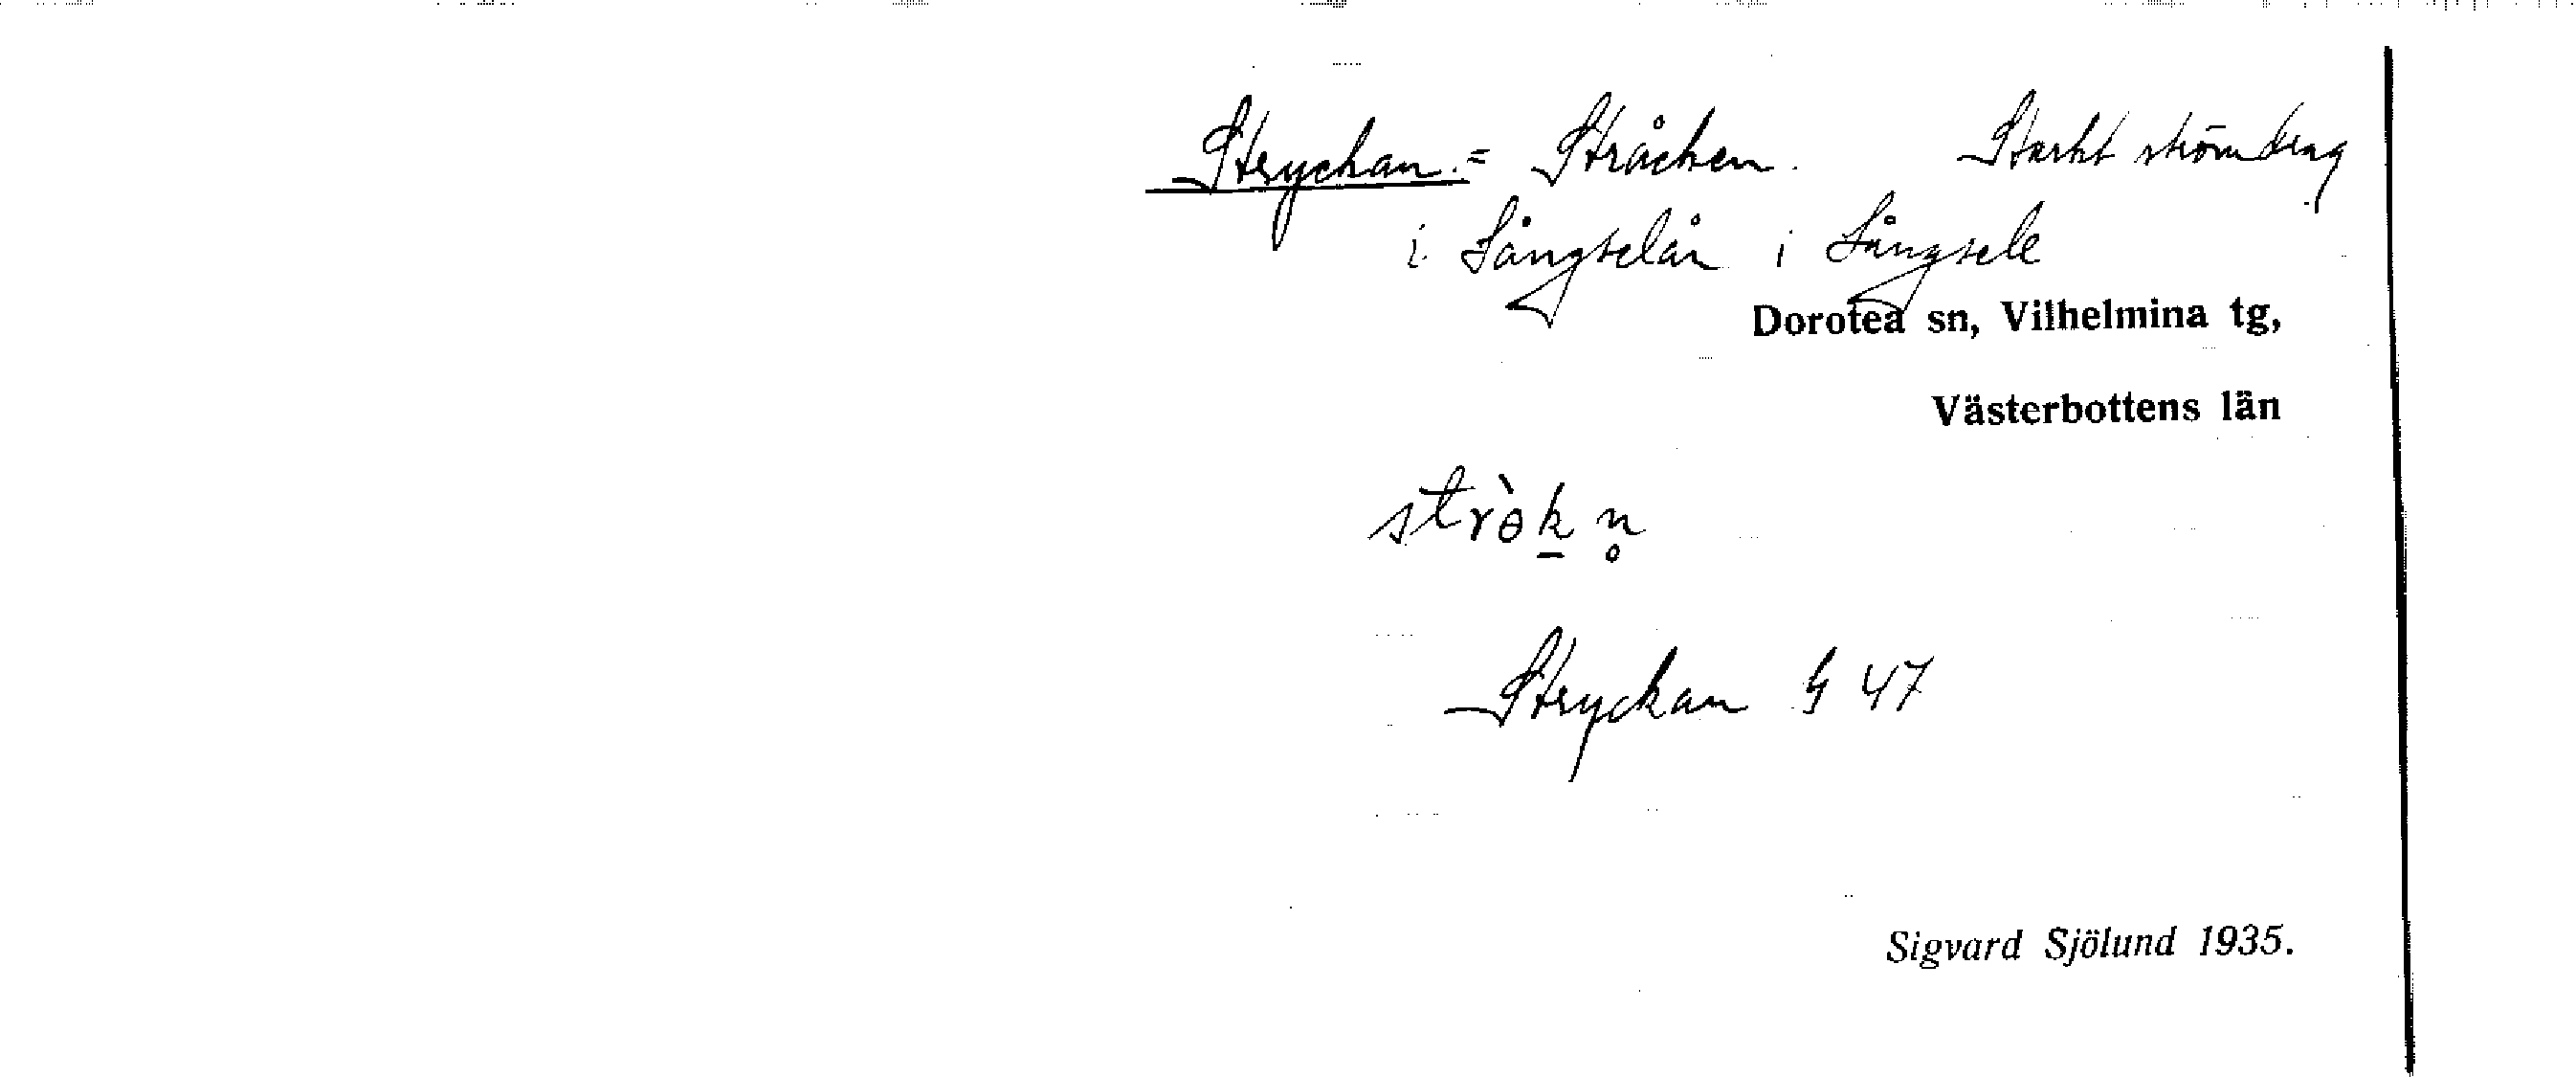 Stryckan = Stråcken. Starkt strömdrag
i Långselån i Långsele
Dorotea sn, Vilhelmina tg,
Västerbottens län
stròk̠ n̥
Stryckan § 47
Sigvard Sjölund 1935.